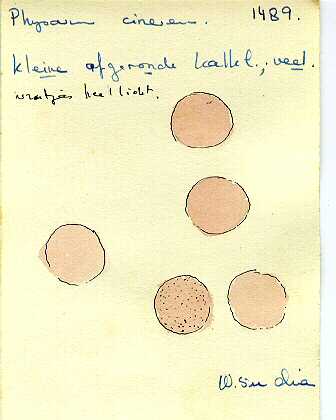 Physarum cinereum. 1489.
kleine afgeronde kalkl., veel.
wratjes heel licht.
W. Sm dia